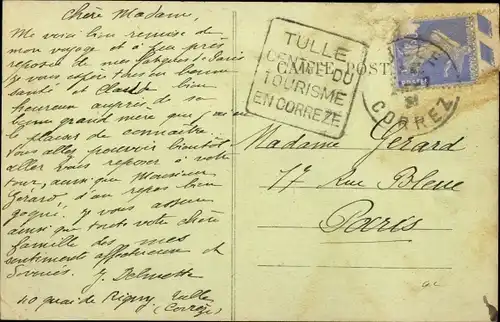 Chère Madame,
Me voici bien remise de
mon voyage et à peu près
reposée de mes fatigues de Paris
Je vous espère tous en bonne
santé et Claude bien
heureux auprès de sa
grand mère que j'ai eu
le plaisir de connaître.
Vous allez pouvoir bientôt
aller vous reposer à votre
tour, ainsi que Monsieur
Gérard, d'un repos bien
gagné. Je vous assure
ainsi que toute votre chère
famille de mes
sentiments affectueux et
dévoués. J. Delmotte
40 quai de Rigny Tulle
(Corrèze)
TULLE
CENTRE DU
TOURISME
EN CORREZE
CARTE POSTALE
CORREZE
Madame Gérard
17 Rue Bleue
Paris